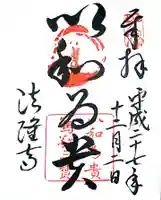 奉拝
平成二十七年
十二月十日
以和為貴
法隆寺